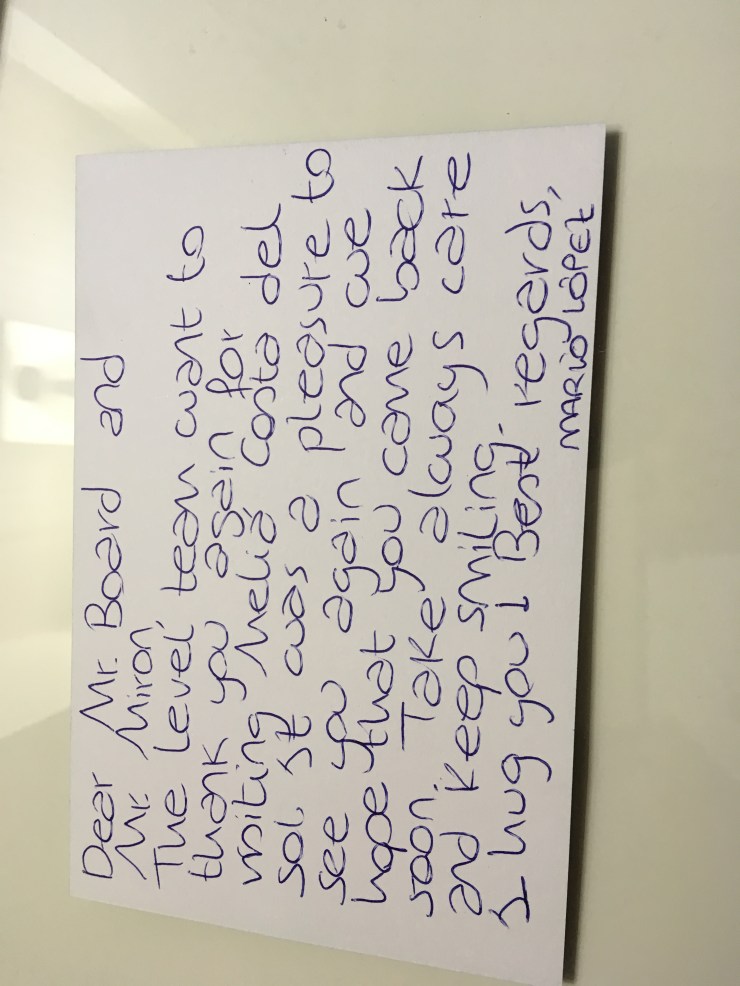 Dear Mr. Board and
Mr. Miron,
The Level team want to
thank you again for
visiting Meliá Costa del
sol. It was a pleasure to
see you again and we
hope that you come back
soon. Take always care
and keep smiling.
I hug you! Best regards,
MARIO LÓPEZ